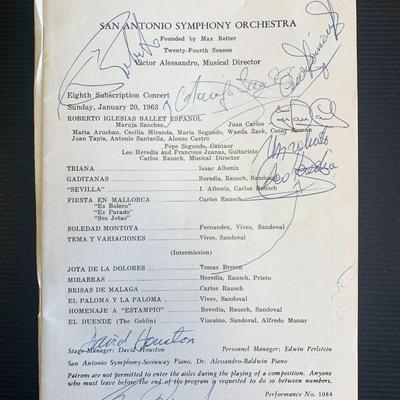 SAN ANTONIO SYMPHONY ORCHESTRA
Founded by Max Reiter
Twenty-Fourth Season
Victor Alessandro, Musical Director
Eighth Subscription Concert
Sunday, January 20, 1963
ROBERTO IGLESIAS BALLET ESPAÑOL
Maruja Sanchez, Juan Carlos
Maria Arushan, Cecilia Miranda, Maria Segundo, Wanda Zack, Cesar
Juan Tapia, Antonio Santaella, Alonso Castro
Pepe Segundo, Cantaor
Leo Heredia and Francisco Juanas, Guitarists
Carlos Rausch, Musical Director
TRIANA Isaac Albeniz
GADITANAS Heredia, Rausch, Sandoval
"SEVILLA" I. Albeniz, Carlos Rausch
FIESTA EN MALLORCA Carlos Rausch
"Es Bolero"
"Es Parado"
"Ses Jotas"
SOLEDAD MONTOYA Fernandez, Vives, Sandoval
TEMA Y VARIACIONES Vives, Sandoval
(Intermission)
JOTA DE LA DOLORES Tomas Breton
MIRABRAS Heredia, Rausch, Prieto
BRISAS DE MALAGA Carlos Rausch
EL PALOMA Y LA PALOMA Vives, Sandoval
HOMENAJE A "ESTAMPIO" Revedia, Rausch, Sandoval
EL DUENDE (The Goblin) Viscaino, Sandoval, Alfredo Munar
David Houston
Stage Manager: David Houston Personnel Manager: Edwin Perlstein
San Antonio Symphony-Steinway Piano, Dr. Alessandro-Baldwin Piano
Patrons are not permitted to enter the aisles during the playing of a composition. Anyone
who must leave before the end of the program is requested to do so between numbers.
Performance No. 1084
Leo Heredia